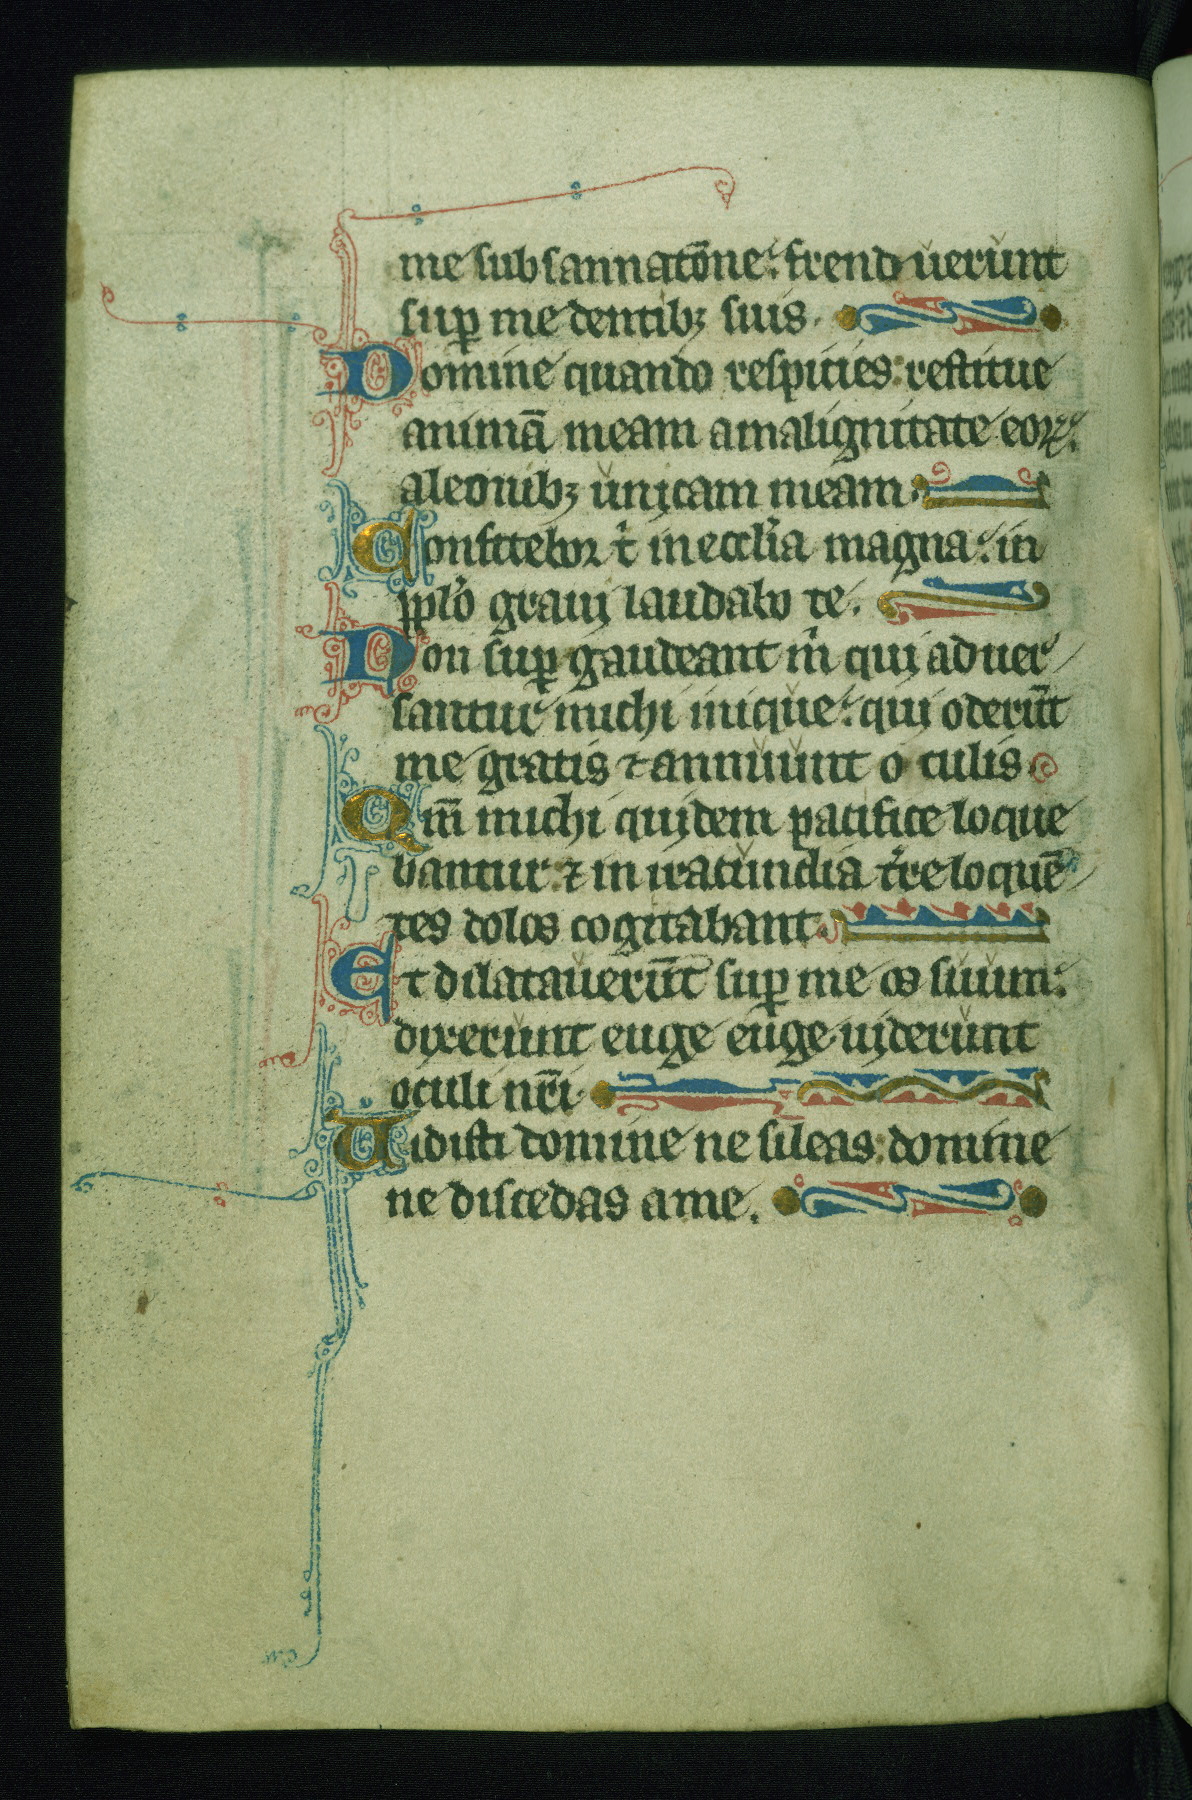 me subsannatōne: frend uerunt
suꝑ me dentibꝫ suis.
Domine quando respicies: restitue
animā meam amalignitate eoꝝ:
aleonibꝫ unicam meam.
Confitebor tⁱ in eccl'ia magna: in
pplo graui laudabo te.
Non suꝑ gaudeant mⁱ qui aduer
santur michi inique: qui oderūt
me gratis ⁊ annuunt o culis
Qm̄ michi quidem pacifice loque
bantur: ⁊ in iracundia t're loquē
tes dolos cogitabant.
Et dilatauerūt suꝑ me os suum:
dixerunt euge euge uiderunt
oculi nr̄i
Uidisti domine ne sileas: domine
ne discedas ame.